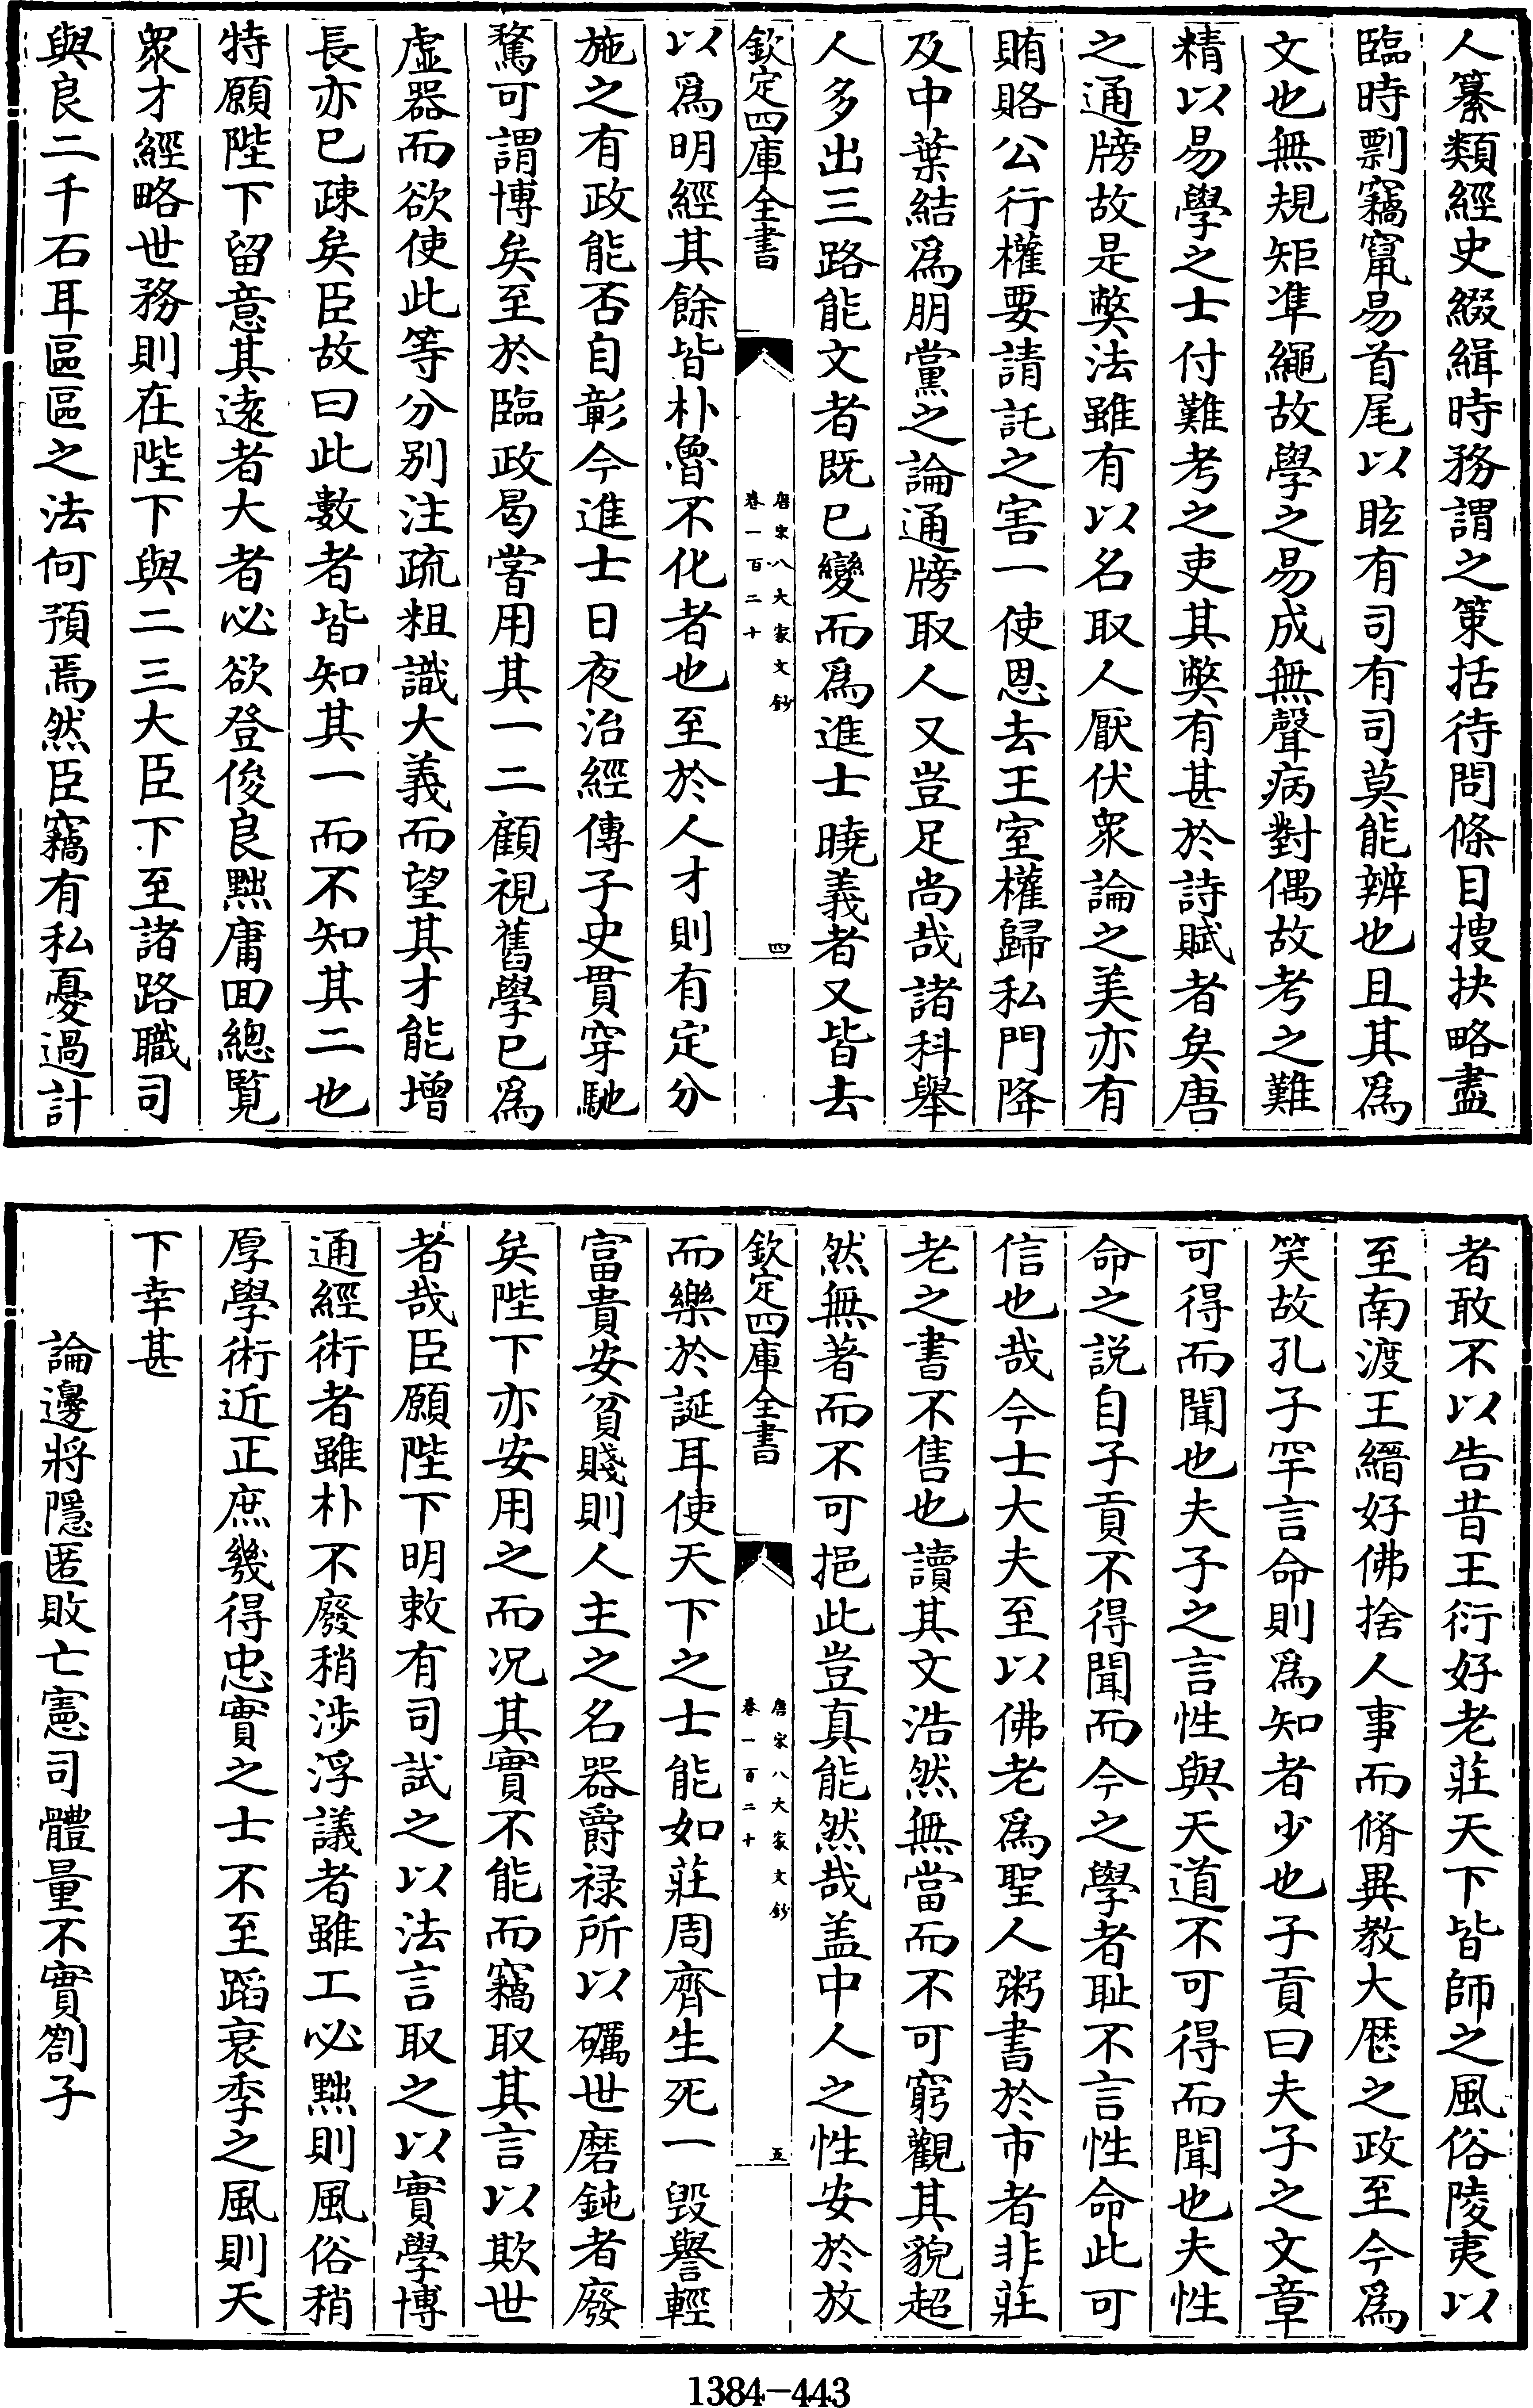 人纂類經史綴緝時務謂之策括待問條目搜抉略盡
臨時剽竊竄易首尾以眩有司有司莫能辨也且其爲
文也無規矩準繩故學之易成無聲病對偶故考之難
精以易學之士付難考之吏其弊有甚於詩賦者矣唐
之通牓故是弊法雖有以名取人厭伏衆論之美亦有
賄賂公行權要請託之害一使恩去王室權歸私門降
及中葉結爲朋黨之論通牓取人又豈足尚哉諸科舉
人多出三路能文者既已變而爲進士曉義者又皆去
欽定四庫全書
唐宋八大家文鈔
卷一百二十
四
以爲明經其餘皆朴魯不化者也至於人才則有定分
施之有政能否自彰今進士日夜治經傳子史貫穿馳
騖可謂博矣至於臨政曷嘗用其一二顧視舊學已爲
虛器而欲使此等分別注疏粗識大義而望其才能增
長亦已疎矣臣故曰此數者皆知其一而不知其二也
特願陛下留意其遠者大者必欲登俊良黜庸回總覧
衆才經略世務則在陛下與二三大臣下至諸路職司
與良二千石耳區區之法何預焉然臣竊有私憂過計
者敢不以告昔王衍好老莊天下皆師之風俗陵夷以
至南渡王縉好佛捨人事而脩異教大厯之政至今爲
笑故孔子罕言命則爲知者少也子貢曰夫子之文章
可得而聞也夫子之言性與天道不可得而聞也夫性
命之説自子貢不得聞而今之學者耻不言性命此可
信也哉今士大夫至以佛老爲聖人粥書於市者非莊
老之書不售也讀其文浩然無當而不可窮觀其貌超
然無著而不可挹此豈真能然哉盖中人之性安於放
欽定四庫全書
唐宋八大家文鈔
卷一百二十
五
而樂於誕耳使天下之士能如莊周齊生死一毁譽輕
富貴安貧賤則人主之名器爵禄所以礪世磨鈍者廢
矣陛下亦安用之而况其實不能而竊取其言以欺世
者哉臣願陛下明敕有司試之以法言取之以實學博
通經術者雖朴不廢稍涉浮議者雖工必黜則風俗稍
厚學術近正庶幾得忠實之士不至蹈衰季之風則天
下幸甚
論邊將隱匿敗亡憲司體量不實劄子
1384-443